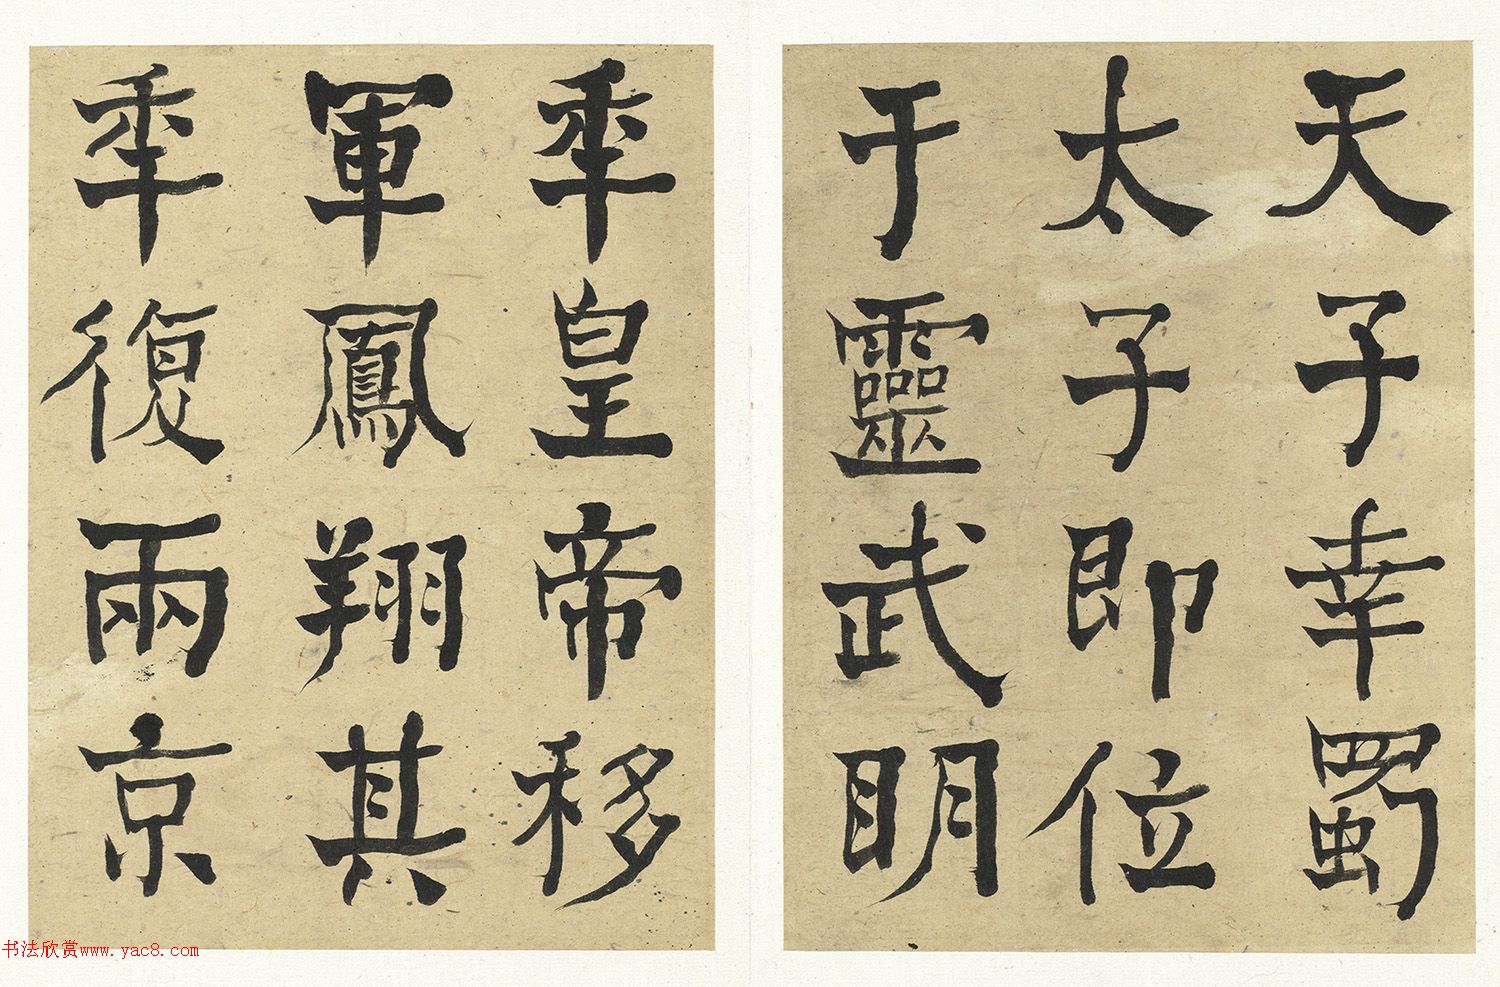 天子幸蜀
太子即位
于靈武明
秊皇帝移
軍鳳翔其
秊復兩京
书法欣赏www.yac8.com